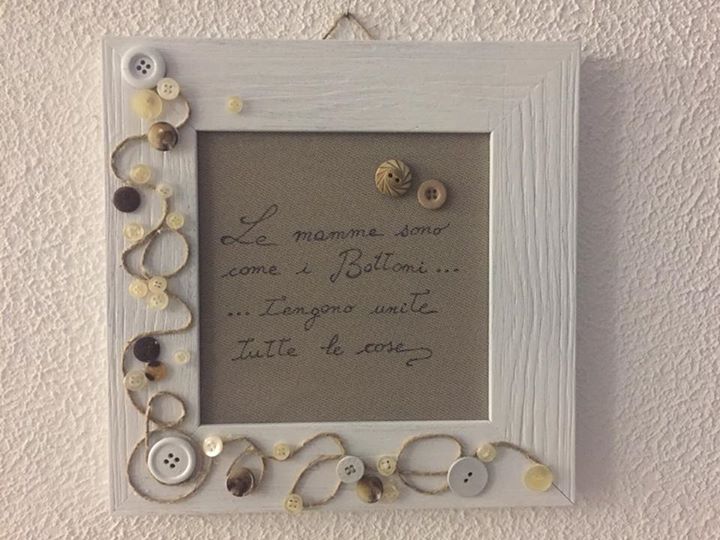 Le mamme sono
come i Bottoni...
...tengono unite
tutte le cose